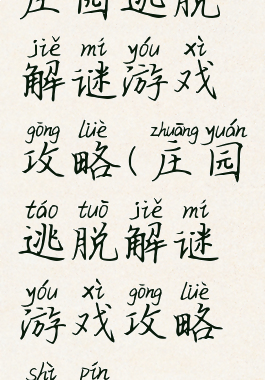 庄园逃脱
jiě mí yóu xì
解谜游戏
gōng lüè zhuāng yuán
攻略(庄园
táo tuō jiě mí
逃脱解谜
yóu xì gōng lüè
游戏攻略
shì pín